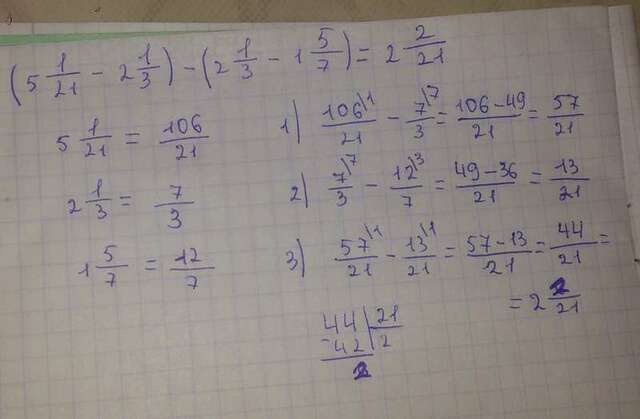 (5 1/21 - 2 1/3) - (2 1/3 - 1 5/7) = 2 2/21
5 1/21 = 106/21
2 1/3 = 7/3
1 5/7 = 12/7
1) 106\1/21 - 7\7/3 = 106-49/21 = 57/21
2) 7\7/3 - 12\3/7 = 49-36/21 = 13/21
3) 57\1/21 - 13\1/21 = 57-13/21 = 44/21 =
= 2 2/21
44 | 21
-42 | 2
2